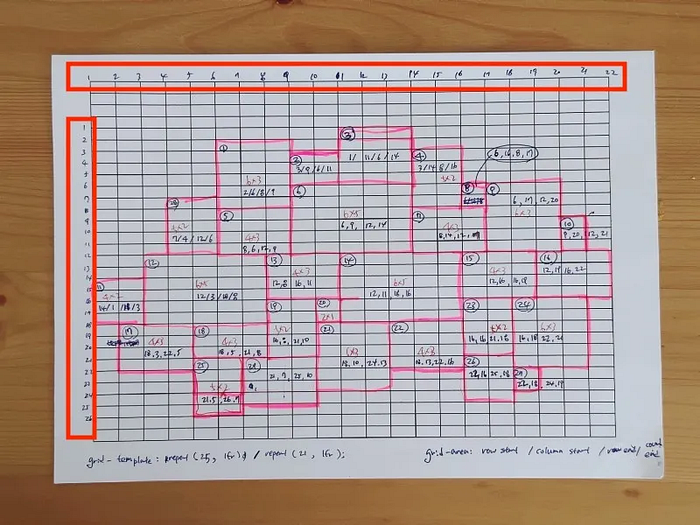 1 2 3 4 5 6 7 8 9 10 11 12 13 14 15 16 17 18 19 20 21 22
1
2
3
4
5
6
7
8
9
10
11
12
13
14
15
16
17
18
19
20
21
22
23
24
25
26
1
6x3
2/6/8/9
2
3/9/6/11
3
1/ 11/6/14
4
3/14/8/16
4x2
8
(6, 16, 8, 17)
9
6, 17, 12, 20
6x3
5
4x3
8, 6, 12, 9
6
6x5
6, 9, 12, 14
4x3
10
9, 20, 12, 21
4x2
7/4/12/6
12
6x5
12/3/18/8
13
4x3
12, 8 16, 11
14
6x5
12, 11 18, 16
15
4x3
12, 16, 16, 19
16
12, 19 16, 22
4x2
14/1/18/3
17
4x3
18, 3, 22, 5
18
4x3
18, 5, 21, 8
19
4x2
20
2x1
21
18, 10, 24, 13
22
4x3
18, 13, 22, 16
23
4x2
16, 16 21, 18
24
6x3
16, 18 22, 21
25
4x2
21, 5, 26, 7
21, 8, 25, 10
26
22, 16 25, 18
22, 18 24, 19
grid-template: repeat (25, 1fr) / repeat (21, 1fr);
grid-area: row start / column start / row end / column end